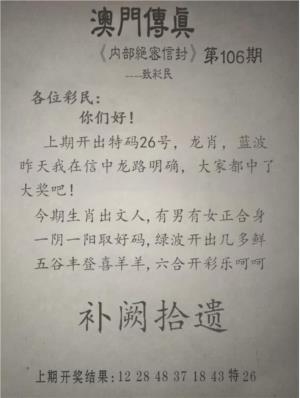 澳門傳眞
《内部絕密信封》第106期
----致彩民
各位彩民：
你们好！
上期开出特码26号，龙肖，蓝波
昨天我在信中龙路明确，大家都中了
大奖吧！
今期生肖出文人，有男有女正合身
一阴一阳取好码，绿波开出几多鲜
五谷丰登喜羊羊，六合开彩乐呵呵
补阙拾遗
上期开奖结果：12 28 48 37 18 43 特26